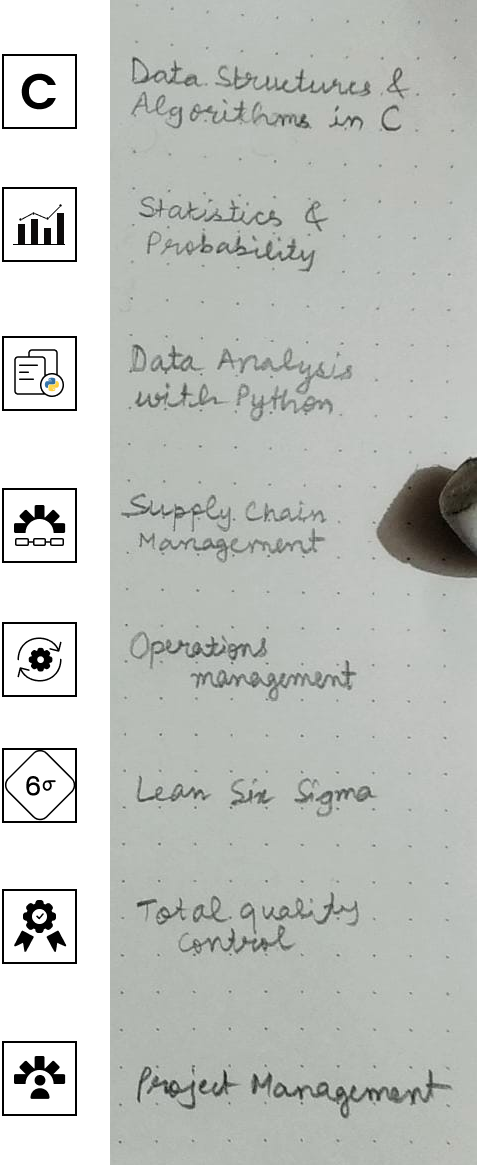 C
Data Structures &
Algorithms in C
Statistics &
Probability
Data Analysis
with Python
Supply Chain
Management
Operations
management
6σ
Lean Six Sigma
Total quality
control
Project Management